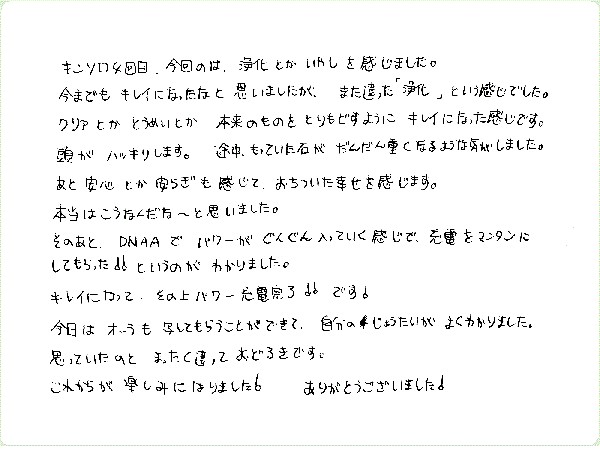 キンソロ4回目、今回のは、浄化とかいやしを感じました。
今までも キレイになったなと 思いましたが、 また違った「浄化」という感じでした。
クリアとか とうめいとか 本来のものを とりもどすように キレイになった感じです。
頭が ハッキリします。 途中、もっていた石が だんだん重くなるような気がしました。
あと 安心とか 安らぎも 感じて、おちついた幸せを感じます。
本当はこうなんだな〜と思いました。
そのあと、DNAAで パワーが ぐんぐん入っていく感じで、充電をマンタンに
してもらった!! というのが わかりました。
キレイになって、その上パワー充電完了!! です!
今日は オーラも 写してもらうことができて、自分の じょうたいが よくわかりました。
思っていたのと まったく違って おどろきです。
これからが 楽しみになりました! ありがとうございました!